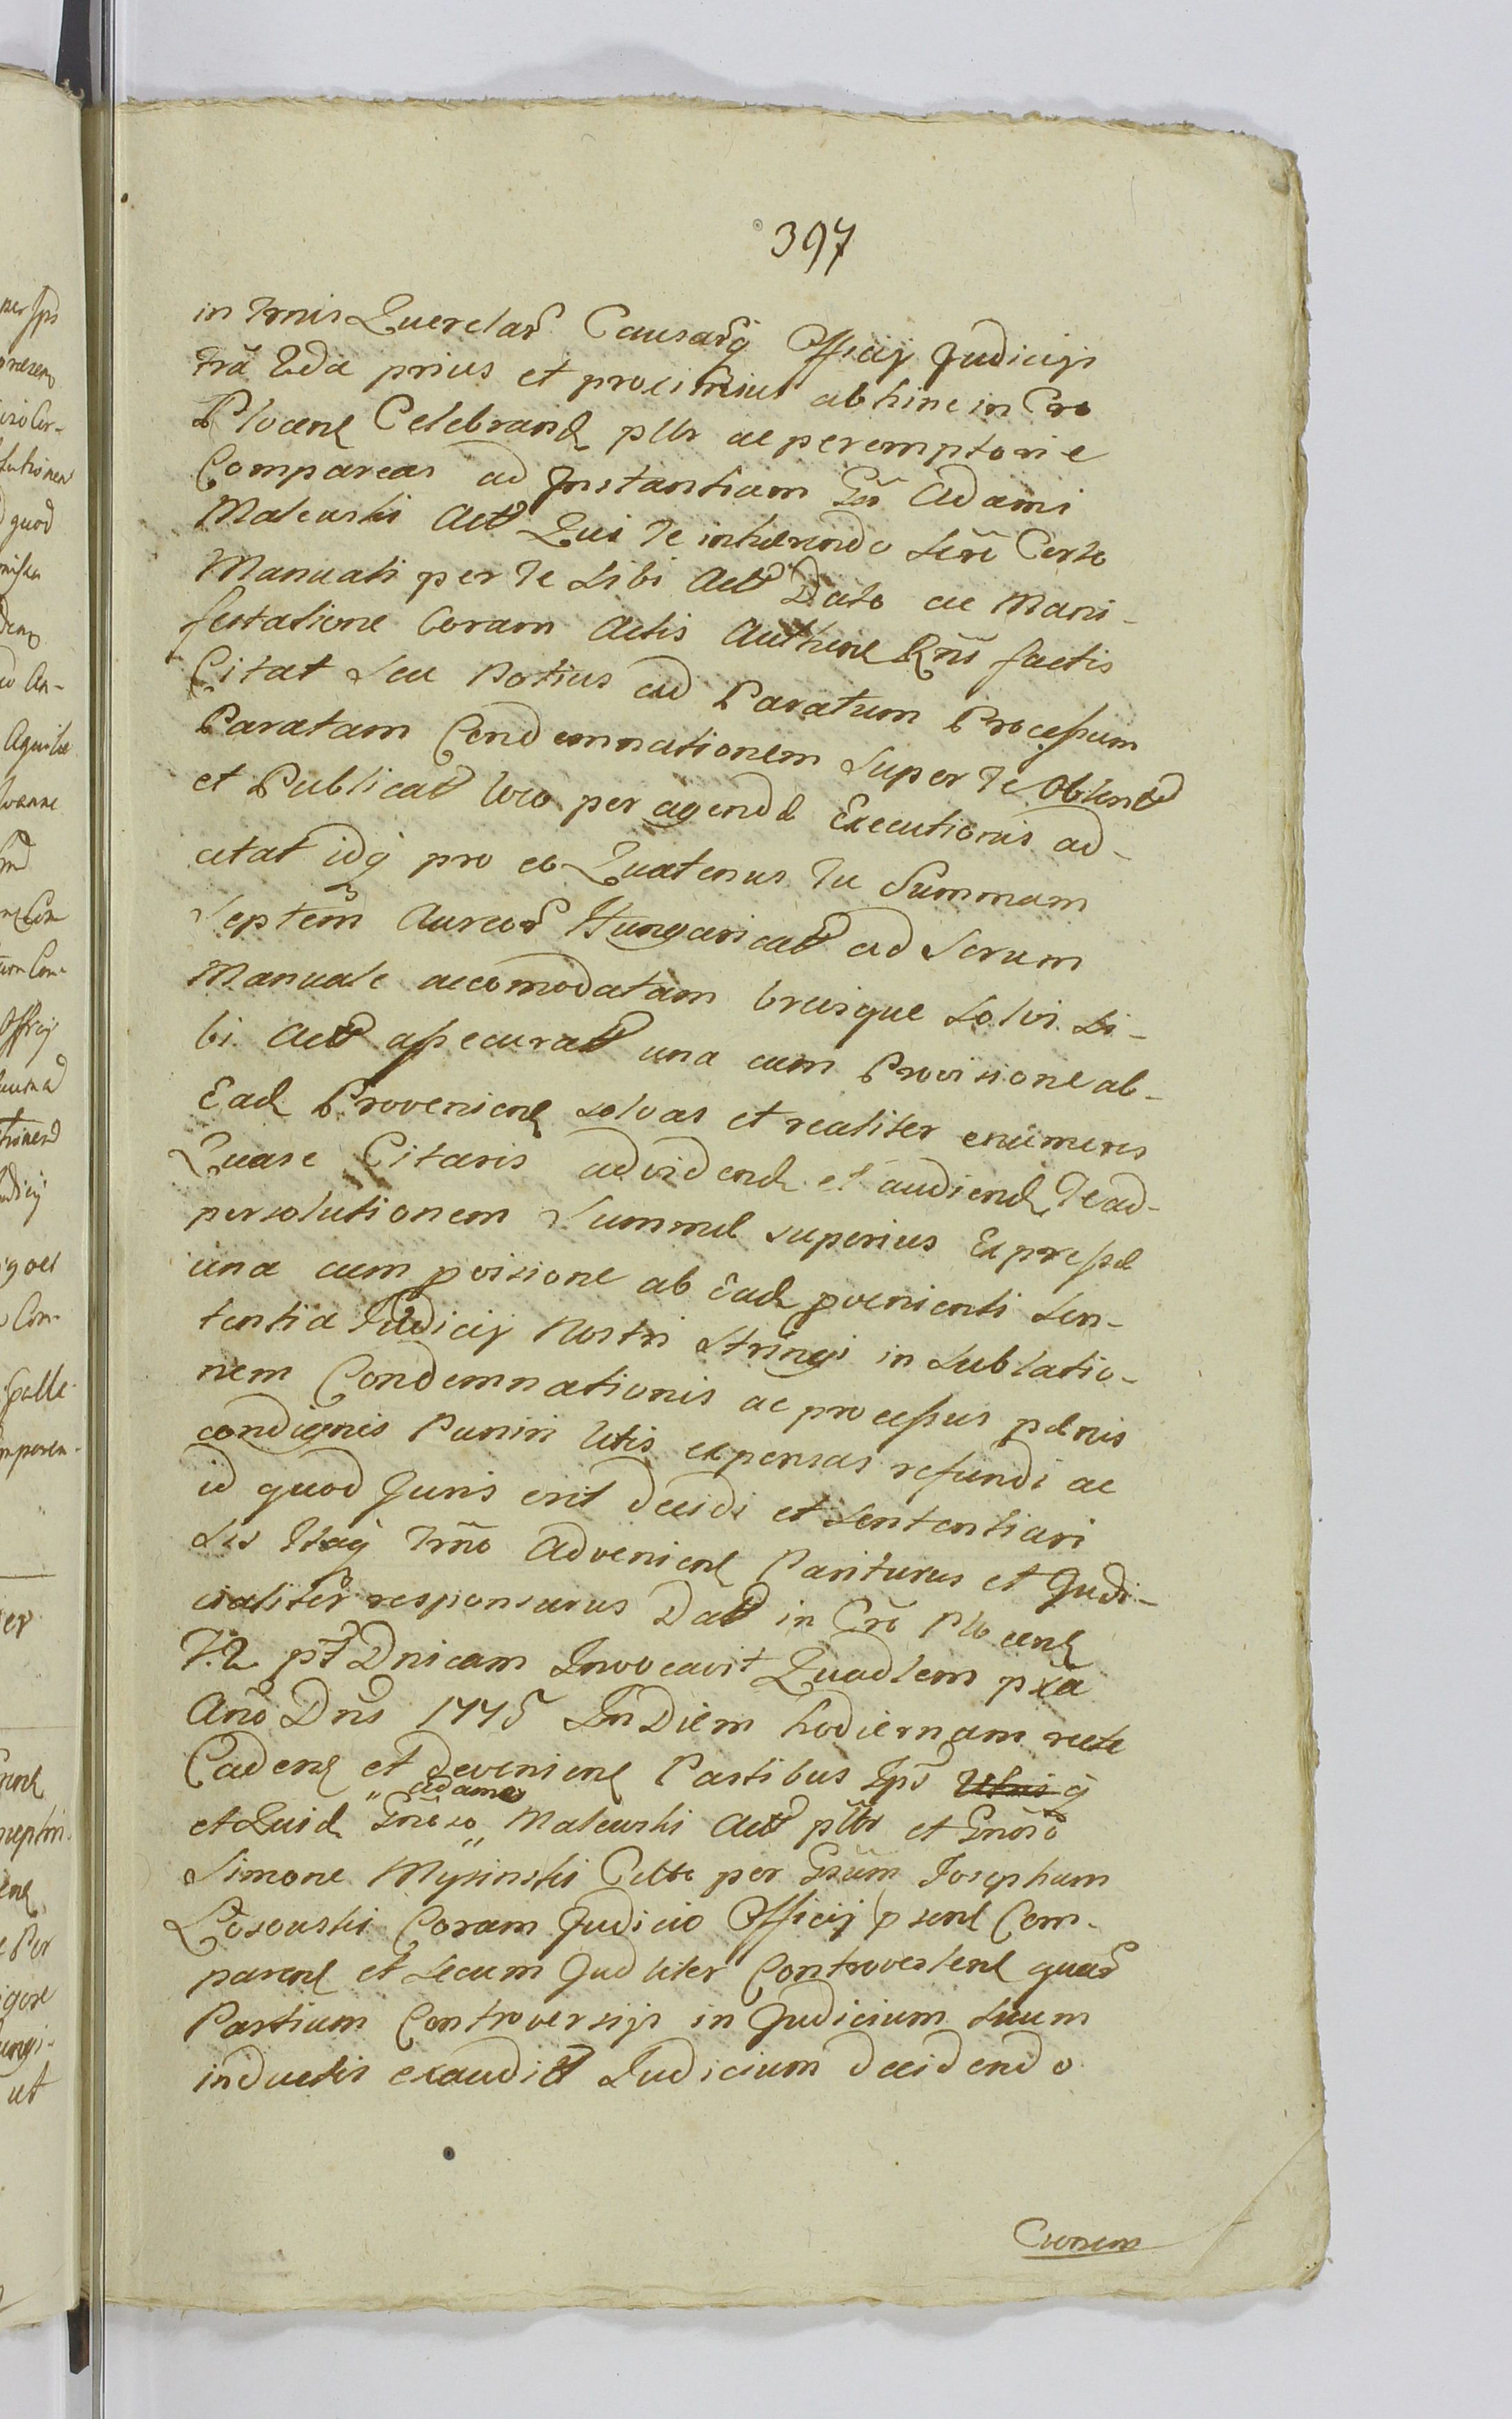 397
in Trmis Querelar Causarq Officij Judicijs
Fra 2da prius et proximius abhinc in Cro
Plocens Celebrand pltr ac peremptorie
Compareas ad Instantiam Gsi Adami
Maleuski Act Qui Te inhærendo Scro Certo
Manuali per Te Sibi Act Dato ac Mani-
festatione Coram Actis Authene Rnsi factis
Citat Seu Potius ad Paratum Processum
Paratam Condemnationem Super Te Obtent
et Publicat loco peragendæ Executionis ad-
citat idq pro eo Quatenus Tu Summam
Septem Aureor Hungaricat ad Scrum
Manuale accomodatam breuique Solvi Si-
bi Act assecurat una cum Provisione ab-
Ead Proveniens solvas et realiter enumeres
Quare Citaris advidend et audiend Te ad-
persolutionem Summæ superius Expressæ
una cum pvisione ab Ead pvenienti Sen-
tentia Judicij Nostri Stringi in Sublatio-
nem Condemnationis ac processus pænis
condignis Puniri litis expensas refundi ac
id quod Juris erit decidi et Sententiari
Sis Itaq Trmo Adveniens Pariturus et Judi-
cialiter responsurus Dat in Cro Plocens
F. 2 pt Dnicam Invocavit Quadlem pxa
Ano Dni 1775 In Diem hodiernam recte
Cadens et Deveniens Partibus Ips Utrisq
adamo
et Quid Gnoso Maleuski Act pltr et Gnoso
Simone Mysinski Citto per Gsum Josephum
Cosouski Coram Judicio Officij psens Com-
parens et Secum Judliter Controvertens quar
Partium Controversijs in Judicium Suum
inductis exaudit Judicium decidendo
Cvonem